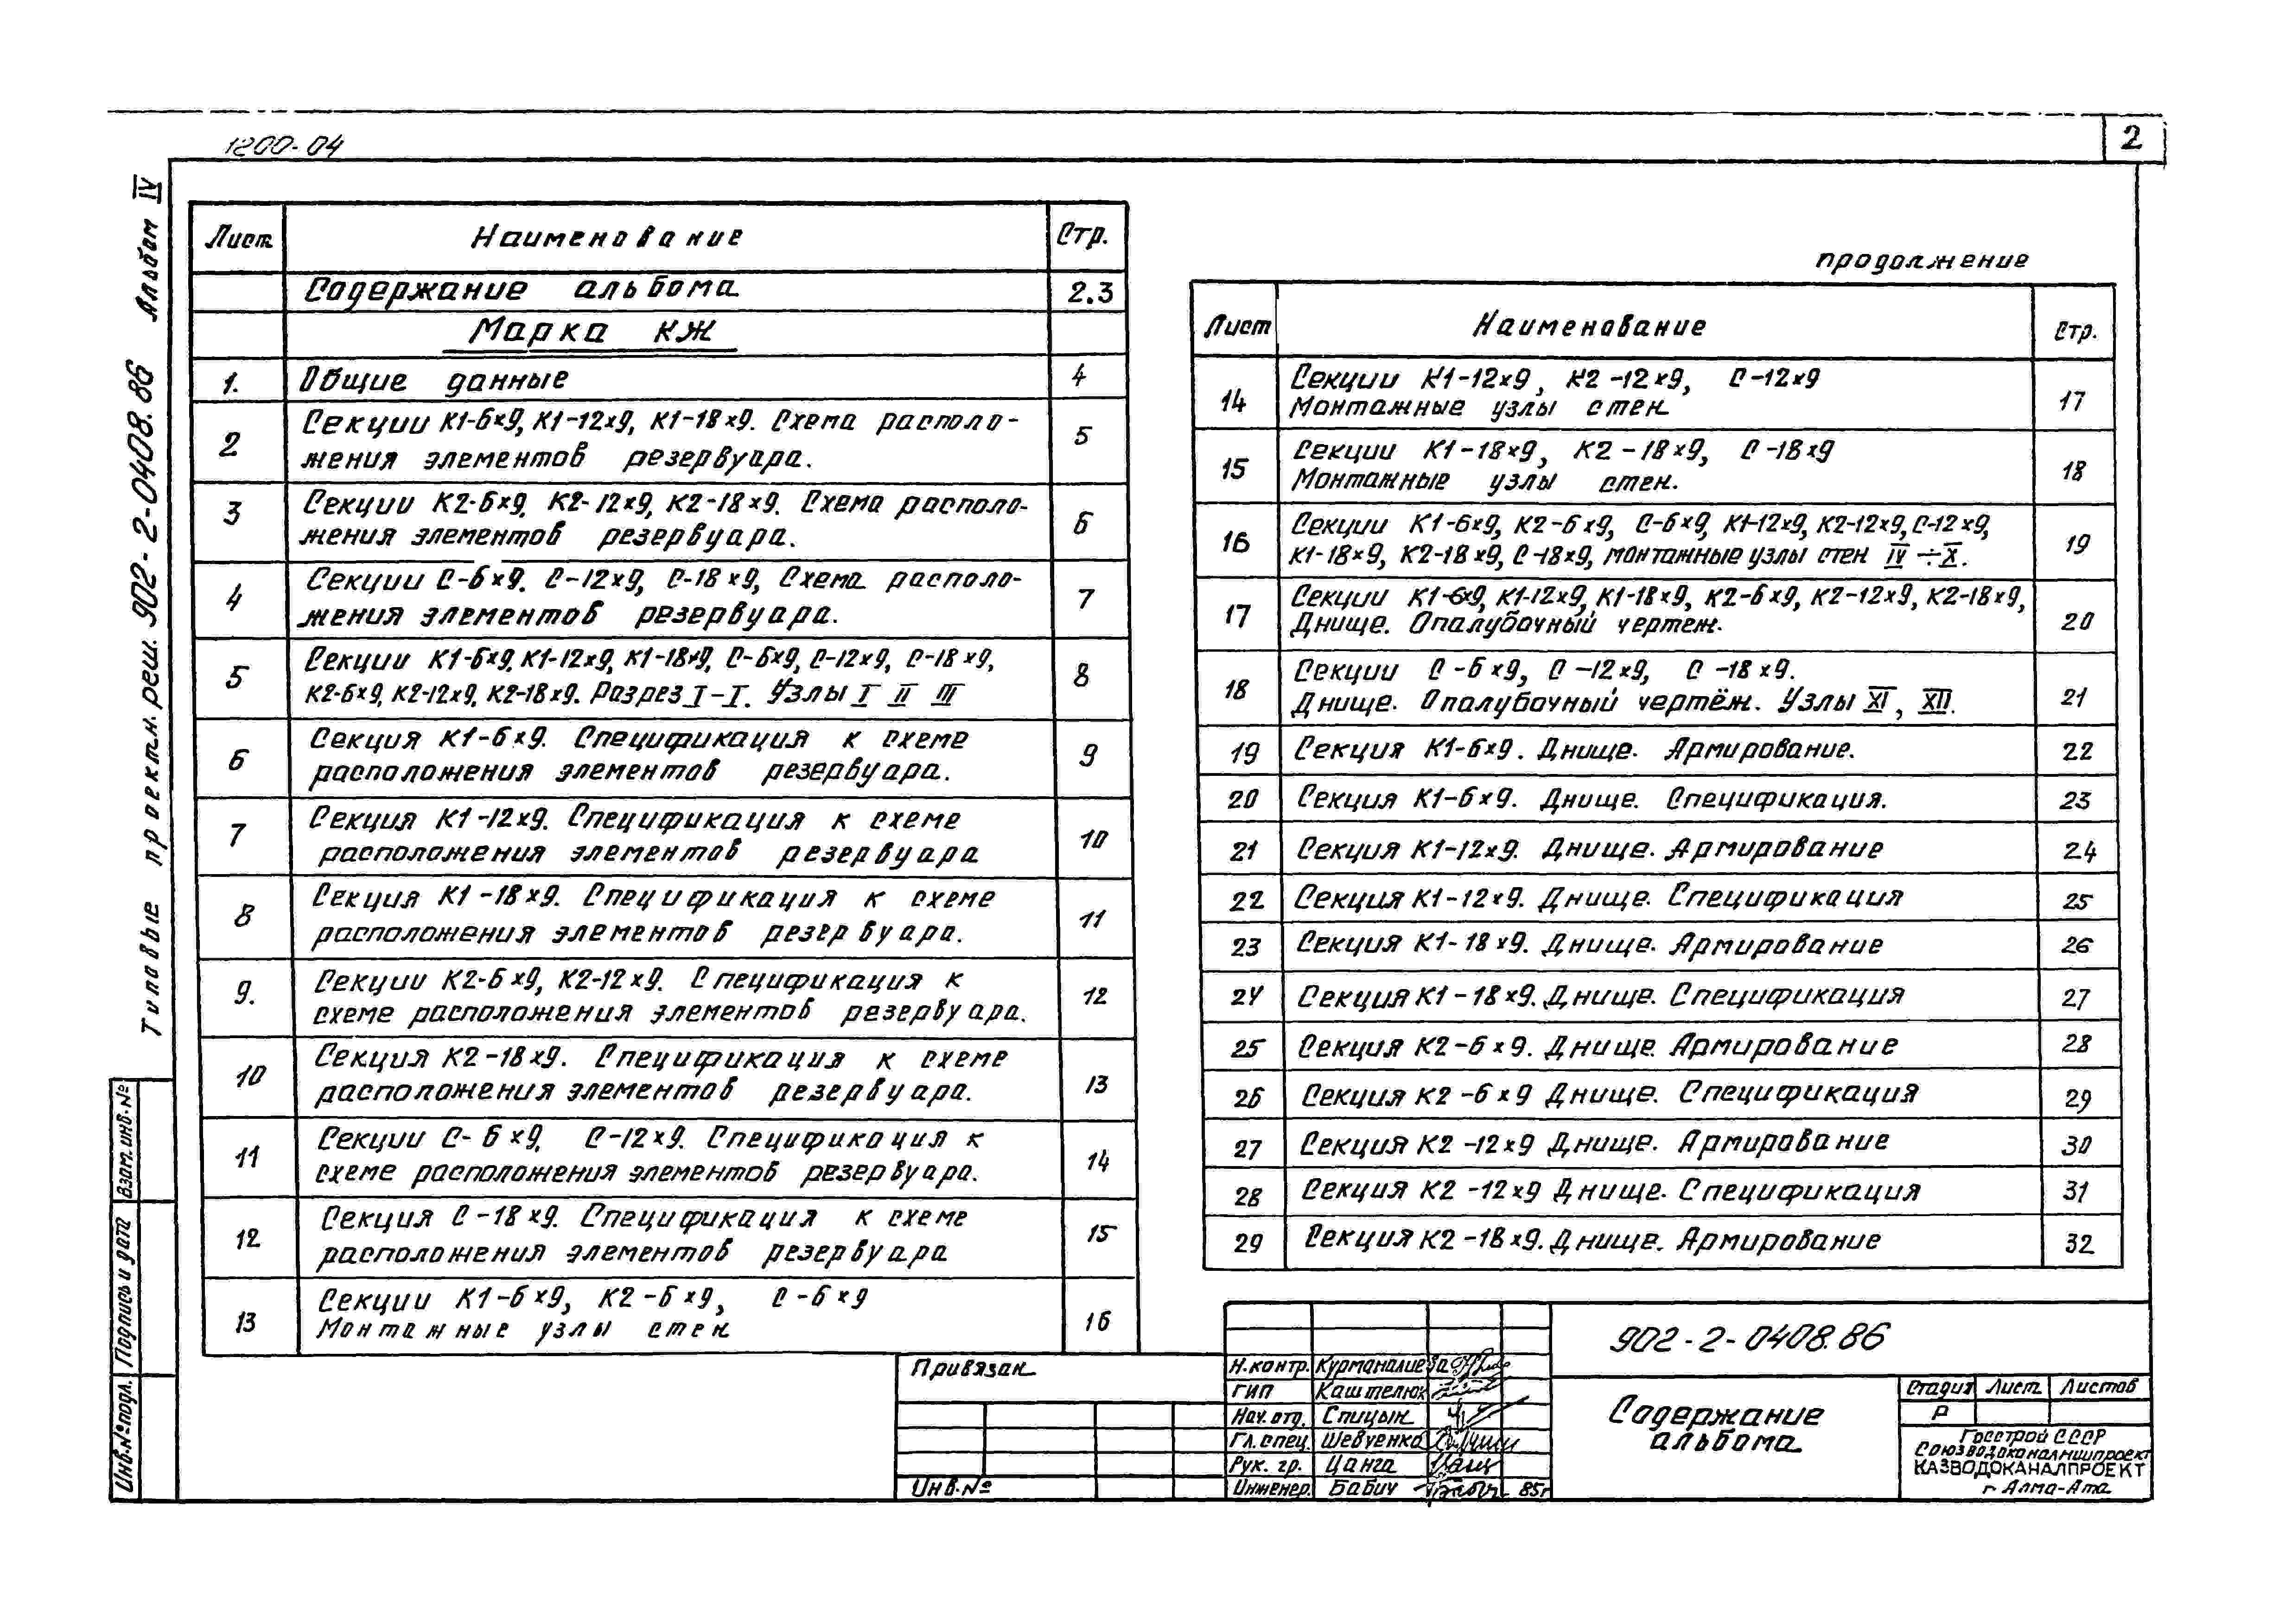 1200-04
2
Типовые проектн. реш. 902-2-0408.86 Альбом IV
Лист Наименование Стр.
Содержание альбома 2.3
Марка КЖ
1. Общие данные 4
2 Секции К1-6х9, К1-12х9, К1-18х9. Схема располо-
жения элементов резервуара. 5
3 Секции К2-6х9, К2-12х9, К2-18х9. Схема располо-
жения элементов резервуара. 6
4 Секции С-6х9. С-12х9, С-18х9, Схема располо-
жения элементов резервуара. 7
5 Секции К1-6х9, К1-12х9, К1-18х9, С-6х9, С-12х9, С-18х9,
К2-6х9, К2-12х9, К2-18х9. Разрез I-I. Узлы I II III 8
6 Секция К1-6х9. Спецификация к схеме
расположения элементов резервуара. 9
7 Секция К1-12х9. Спецификация к схеме
расположения элементов резервуара 10
8 Секция К1-18х9. Спецификация к схеме
расположения элементов резервуара. 11
9. Секции К2-6х9, К2-12х9. Спецификация к
схеме расположения элементов резервуара. 12
10 Секция К2-18х9. Спецификация к схеме
расположения элементов резервуара. 13
11 Секции С-6х9, С-12х9. Спецификация к
схеме расположения элементов резервуара. 14
12 Секция С-18х9. Спецификация к схеме
расположения элементов резервуара 15
13 Секции К1-6х9, К2-6х9, С-6х9
Монтажные узлы стен 16
продолжение
Лист Наименование Стр.
14 Секции К1-12х9, К2-12х9, С-12х9
Монтажные узлы стен 17
15 Секции К1-18х9, К2-18х9, С-18х9
Монтажные узлы стен. 18
16 Секции К1-6х9, К2-6х9, С-6х9, К1-12х9, К2-12х9, С-12х9,
К1-18х9, К2-18х9, С-18х9, монтажные узлы стен IV÷X. 19
17 Секции К1-6х9, К1-12х9, К1-18х9, К2-6х9, К2-12х9, К2-18х9,
Днище. Опалубочный чертеж. 20
18 Секции С-6х9, С-12х9, С-18х9.
Днище. Опалубочный чертёж. Узлы XI, XII. 21
19 Секция К1-6х9. Днище. Армирование. 22
20 Секция К1-6х9. Днище. Спецификация. 23
21 Секция К1-12х9. Днище. Армирование 24
22 Секция К1-12х9. Днище. Спецификация 25
23 Секция К1-18х9. Днище. Армирование 26
24 Секция К1-18х9. Днище. Спецификация 27
25 Секция К2-6х9. Днище. Армирование 28
26 Секция К2-6х9 Днище. Спецификация 29
27 Секция К2-12х9 Днище. Армирование 30
28 Секция К2-12х9 Днище. Спецификация 31
29 Секция К2-18х9. Днище. Армирование 32
Взам. инв. №
Подпись и дата
Инв. № подл.
Привязан
Инв. №
Н.контр. Курманалиева
ГИП Каштелюк
Нач. отд. Спицын
Гл. спец. Шевченко
Рук. гр. Цанга
Инженер. Бабич 85г
902-2-0408.86
Содержание
альбома
Стадия Лист Листов
Р
Госстрой СССР
Союзводоканалниипроект
КАЗВОДОКАНАЛПРОЕКТ
г Алма-Ата